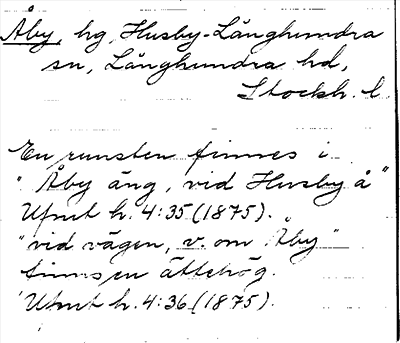 Åby, hg, Husby-Långhundra
sn, Långhundra hd,
Stockh. l.
En runsten finnes i
"Åby äng, vid Husby å"
Ufmt h. 4:35 (1875).
"vid vägen, v. om Åby"
finns en ättehög.
Ufmt h. 4:36 (1875).